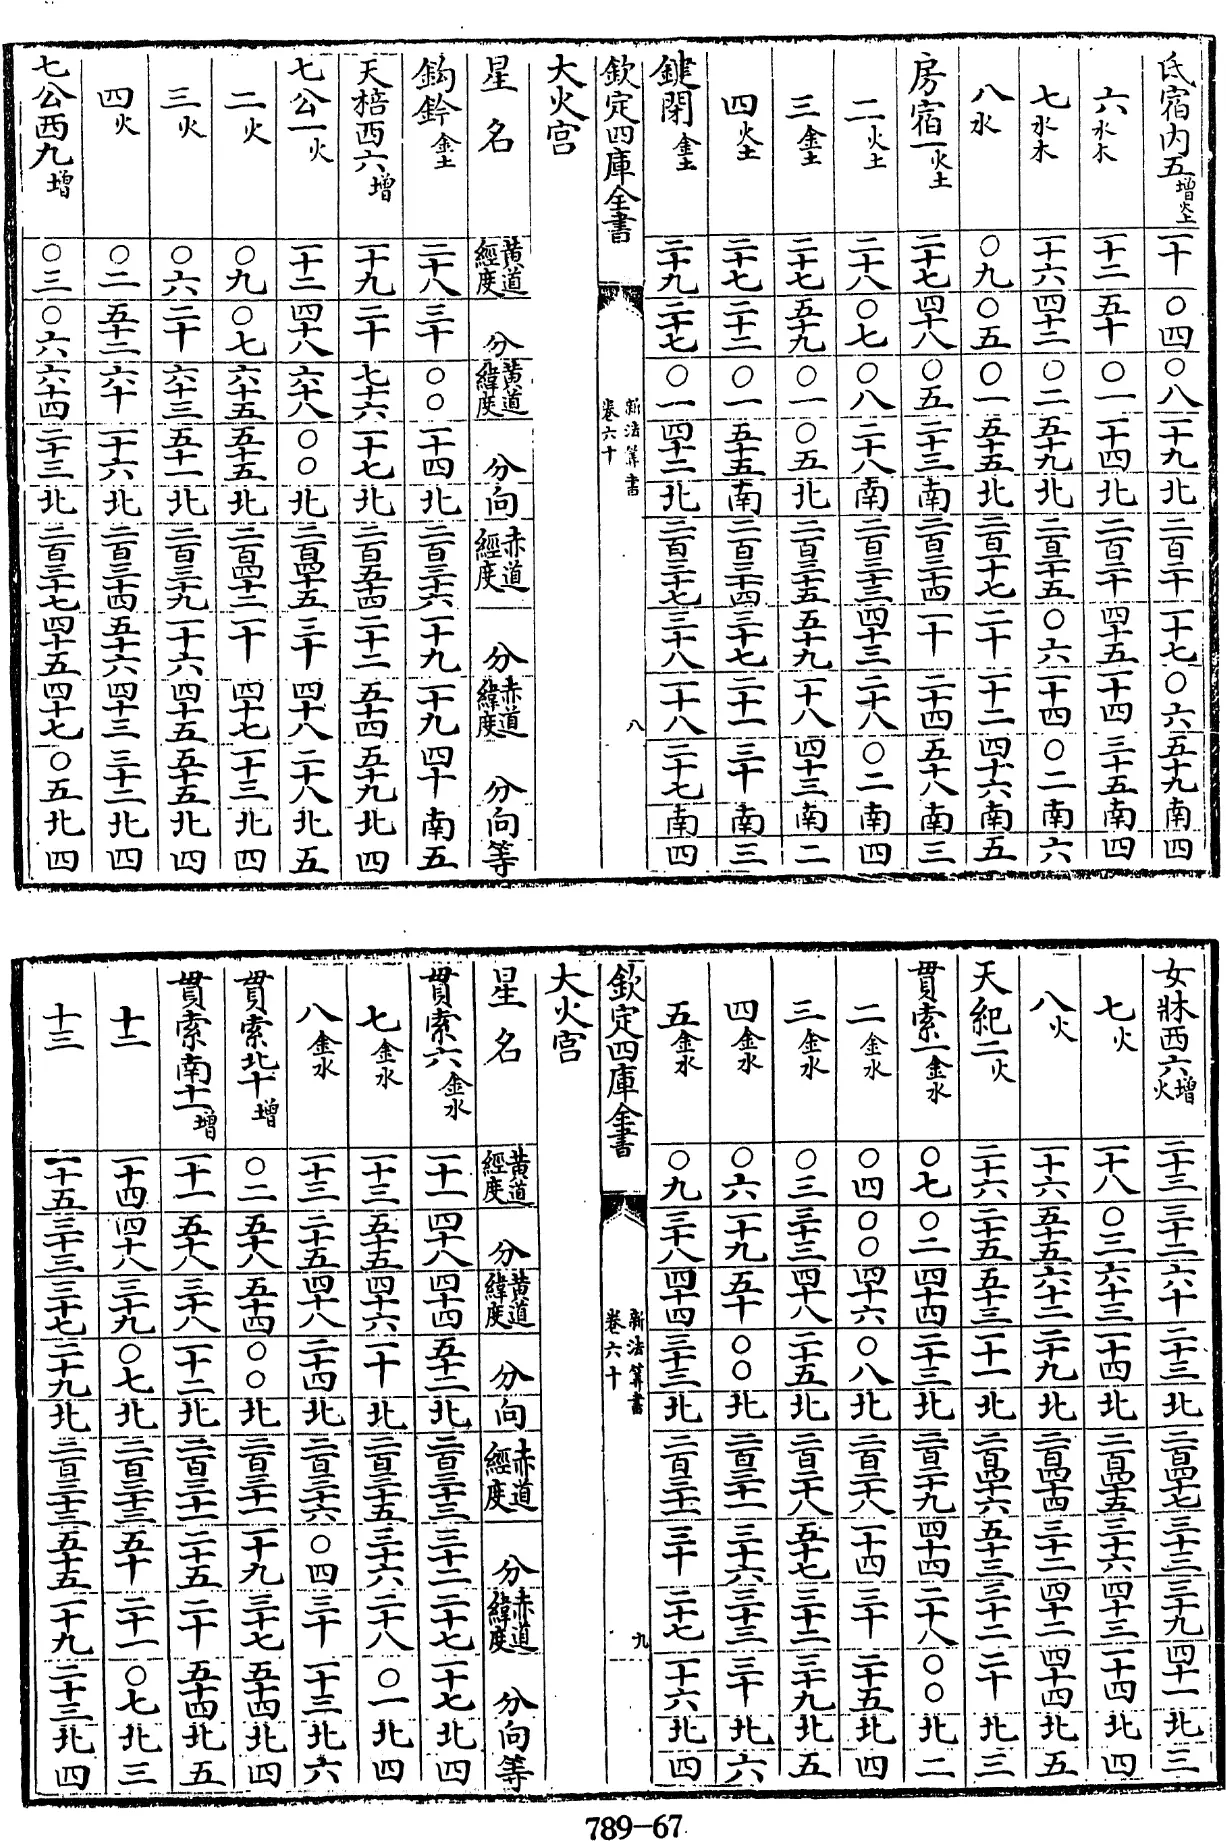 氐宿内五增火土一十○四○八一十九北二百二十一十七○六五十九南四
六水木一十二五十○一一十四北二百二十四十五一十四三十五南四
七水木一十六四十二○二五十九北二百二十五○六一十四○二南六
八水○九○五○一五十五北二百一十七二十一十二四十六南五
房宿一火土二十七四十八○五二十三南二百三十四一十二十四五十八南三
二火土二十八○七○八二十八南二百三十三四十三二十八○二南四
三金土二十七五十九○一○五北二百三十五五十九一十八四十三南二
四火土二十七二十二○一五十五南二百三十四三十七二十一三十南三
鍵閉金土二十九二十七○一四十二北二百三十七三十八一十八二十七南四
欽定四庫全書
新法算書
卷六十
八
大火宫
星名黄道經度分黄道緯度分向赤道經度分赤道緯度分向等
鈎鈐金土二十八三十○○一十四北二百三十六一十九一十九四十南五
天棓西六增一十九二十七十六一十七北二百五十四二十二五十四五十九北四
七公一火一十二四十八六十八○○北二百四十五三十四十八二十八北五
二火○九○七六十五五十五北二百四十二一十四十七一十三北四
三火○六二十六十三五十一北二百三十九一十六四十五五十五北四
四火○二五十二六十一十六北二百三十四五十六四十三三十二北四
七公西九增○三○六六十四二十三北二百三十七四十五四十七○五北四
女牀西六增火二十三三十二六十二十三北二百四十七三十三三十九四十一北三
七火一十八○三六十三一十四北二百四十五三十六四十三一十四北四
八火一十六五十五六十二二十九北二百四十四三十二四十二四十四北五
天紀二火二十六二十五五十三二十一北二百四十六五十三三十二二十北三
貫索一金水○七○二四十四二十三北二百二十九四十四二十八○○北二
二金水○四○○四十六○八北二百二十八一十四三十二十五北四
三金水○三三十三四十八二十五北二百二十八五十七三十二三十九北五
四金水○六一十九五十○○北二百三十一三十六三十三三十北六
五金水○九三十八四十四三十三北二百三十一三十二十七一十六北四
欽定四庫全書
新法算書
卷六十
九
大火宫
星名黄道經度分黄道緯度分向赤道經度分赤道緯度分向等
貫索六金水一十一四十八四十四五十二北二百三十三三十二二十七一十七北四
七金水一十三五十五四十六一十北二百三十五三十六二十八○一北四
八金水一十三二十五四十八二十四北二百三十六○四三十一十三北六
貫索北十增○二五十八五十四○○北二百三十一一十九三十七五十四北四
貫索南十一增一十一五十八三十八一十二北二百三十一二十五二十五十四北五
十二一十四四十八三十九○七北二百三十三五十二十一○七北三
十三一十五三十三三十七二十九北二百三十三五十五一十九二十三北四
789-67